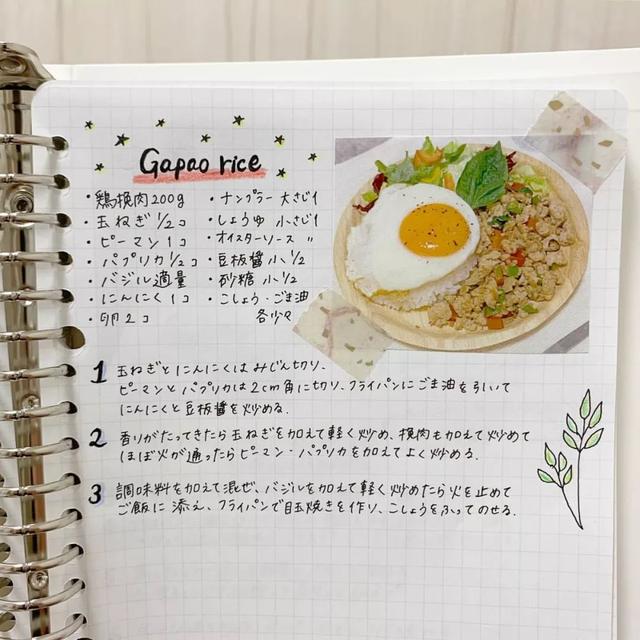 Gapao rice
・鶏挽肉200g
・玉ねぎ1/2コ
・ピーマン1コ
・パプリカ1/2コ
・バジル適量
・にんにく1コ
・卵2コ
・ナンプラー 大さじ1
・しょうゆ 小さじ1
・オイスターソース 〃
・豆板醤 小1/2
・砂糖 小1/2
・こしょう・ごま油
各少々
1 玉ねぎとにんにくはみじん切り、
ピーマンとパプリカは2cm角に切り、フライパンにごま油を引いて
にんにくと豆板醤を炒める.
2 香りがたってきたら玉ねぎを加えて軽く炒め、挽肉も加えて炒めて
ほぼ火が通ったらピーマン・パプリカを加えてよく炒める.
3 調味料を加えて混ぜ、バジルを加えて軽く炒めたら火を止めて
ご飯に添え、フライパンで目玉焼きを作り、こしょうをふってのせる.